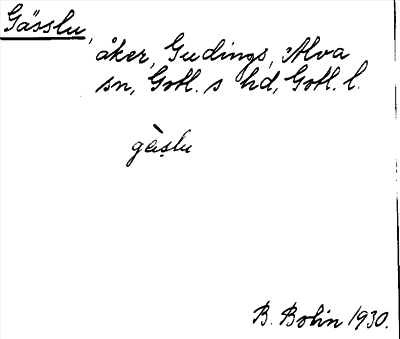 Gässlu,
åker, Gudings, Alva
sn, Gotl. s hd, Gotl. l.
gèịslu
B. Bolin 1930.